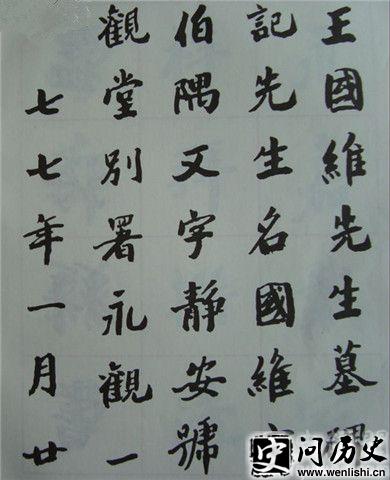 王國維先生墓碑
記先生名國維字
伯隅又字靜安號
觀堂別署永觀一
七七年一月廿
史问历史
www.wenlishi.cn